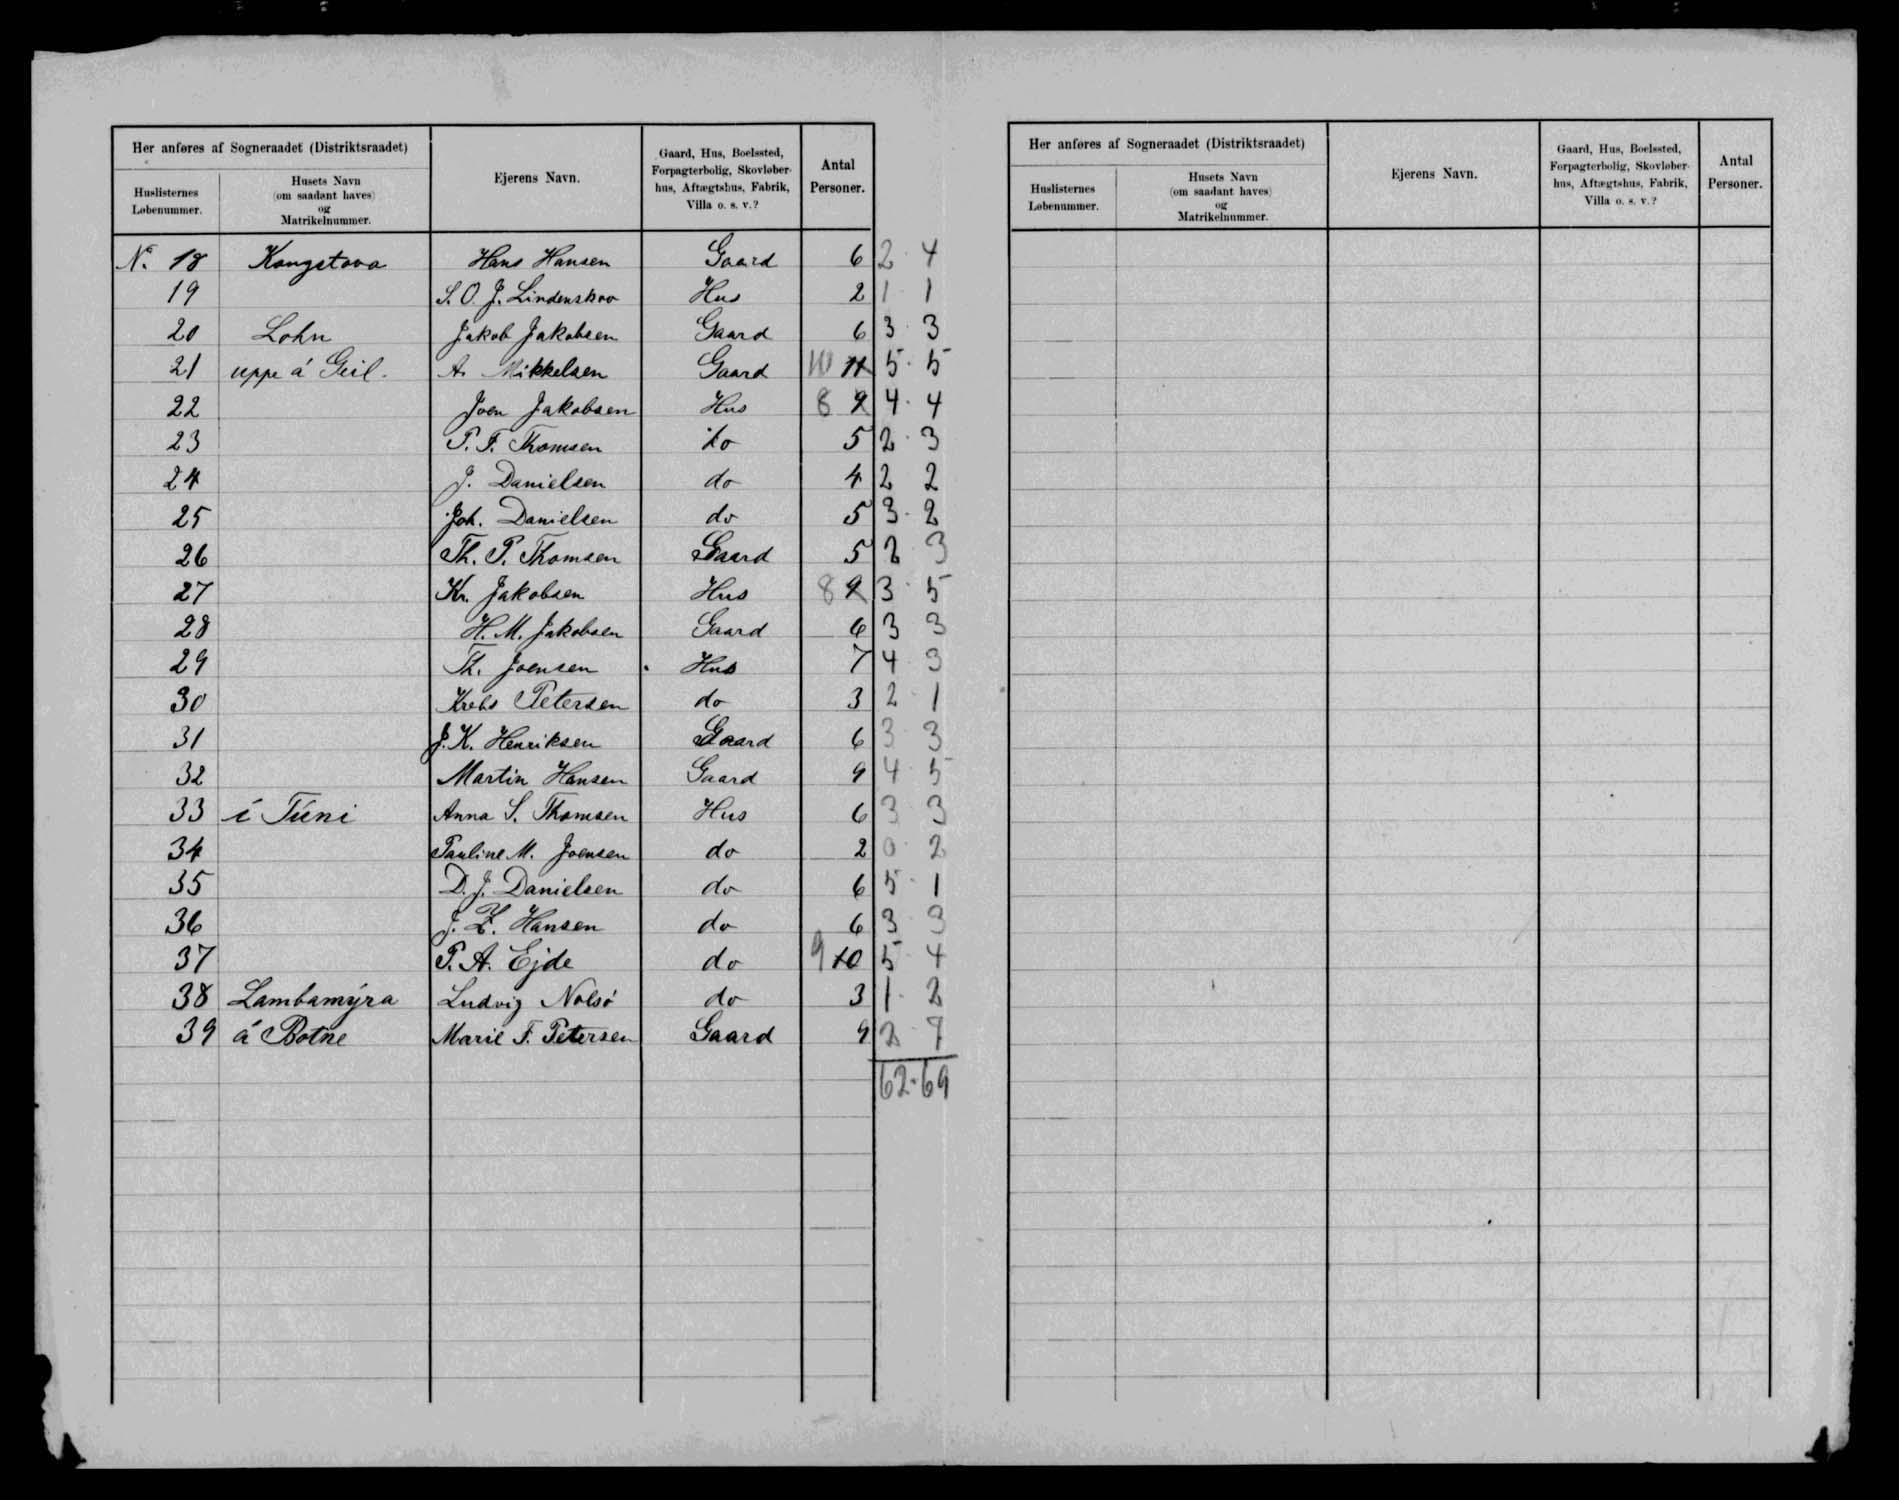 Her anføres af Sogneraadet (Distriktsraadet)
Huslisternes Løbenummer.
Husets Navn (om saadant haves) og Matrikelnummer.
Ejerens Navn.
Gaard, Hus, Boelssted, Forpagterbolig, Skovløberhus, Aftægtshus, Fabrik, Villa o. s. v.?
Antal Personer.
N. 18 Kongstova Hans Hansen Gaard 6 2 · 4
19 S. O. J. Lindenskov Hus 2 1 · 1
20 Lohn Jakob Jakobsen Gaard 6 3 · 3
21 uppe á Geil. A. Mikkelsen Gaard 10 11 5 · 5
22 Joen Jakobsen Hus 8 9 4 · 4
23 P. F. Thomsen do 5 2 · 3
24 J. Danielsen do 4 2 2
25 Joh. Danielsen do 5 3 · 2
26 Th. P. Thomsen Gaard 5 2 · 3
27 Kr. Jakobsen Hus 8 9 3 · 5
28 H. M. Jakobsen Gaard 6 3 3
29 Th. Joensen Hus 7 4 · 3
30 Krebs Petersen do 3 2 · 1
31 J. K. Henriksen Gaard 6 3 · 3
32 Martin Hansen Gaard 9 4 · 5
33 í Túni Anna S. Thomsen Hus 6 3 · 3
34 Pauline M. Joensen do 2 0 · 2
35 D. J. Danielsen do 6 5 · 1
36 J. Z. Hansen do 6 3 · 3
37 P. A. Ejde do 9 10 5 · 4
38 Lambamýra Ludvig Nolsó do 3 1 · 2
39 á Botne Marie F. Petersen Gaard 9 2 · 7
62 · 69
Her anføres af Sogneraadet (Distriktsraadet)
Huslisternes Løbenummer.
Husets Navn (om saadant haves) og Matrikelnummer.
Ejerens Navn.
Gaard, Hus, Boelssted, Forpagterbolig, Skovløberhus, Aftægtshus, Fabrik, Villa o. s. v.?
Antal Personer.